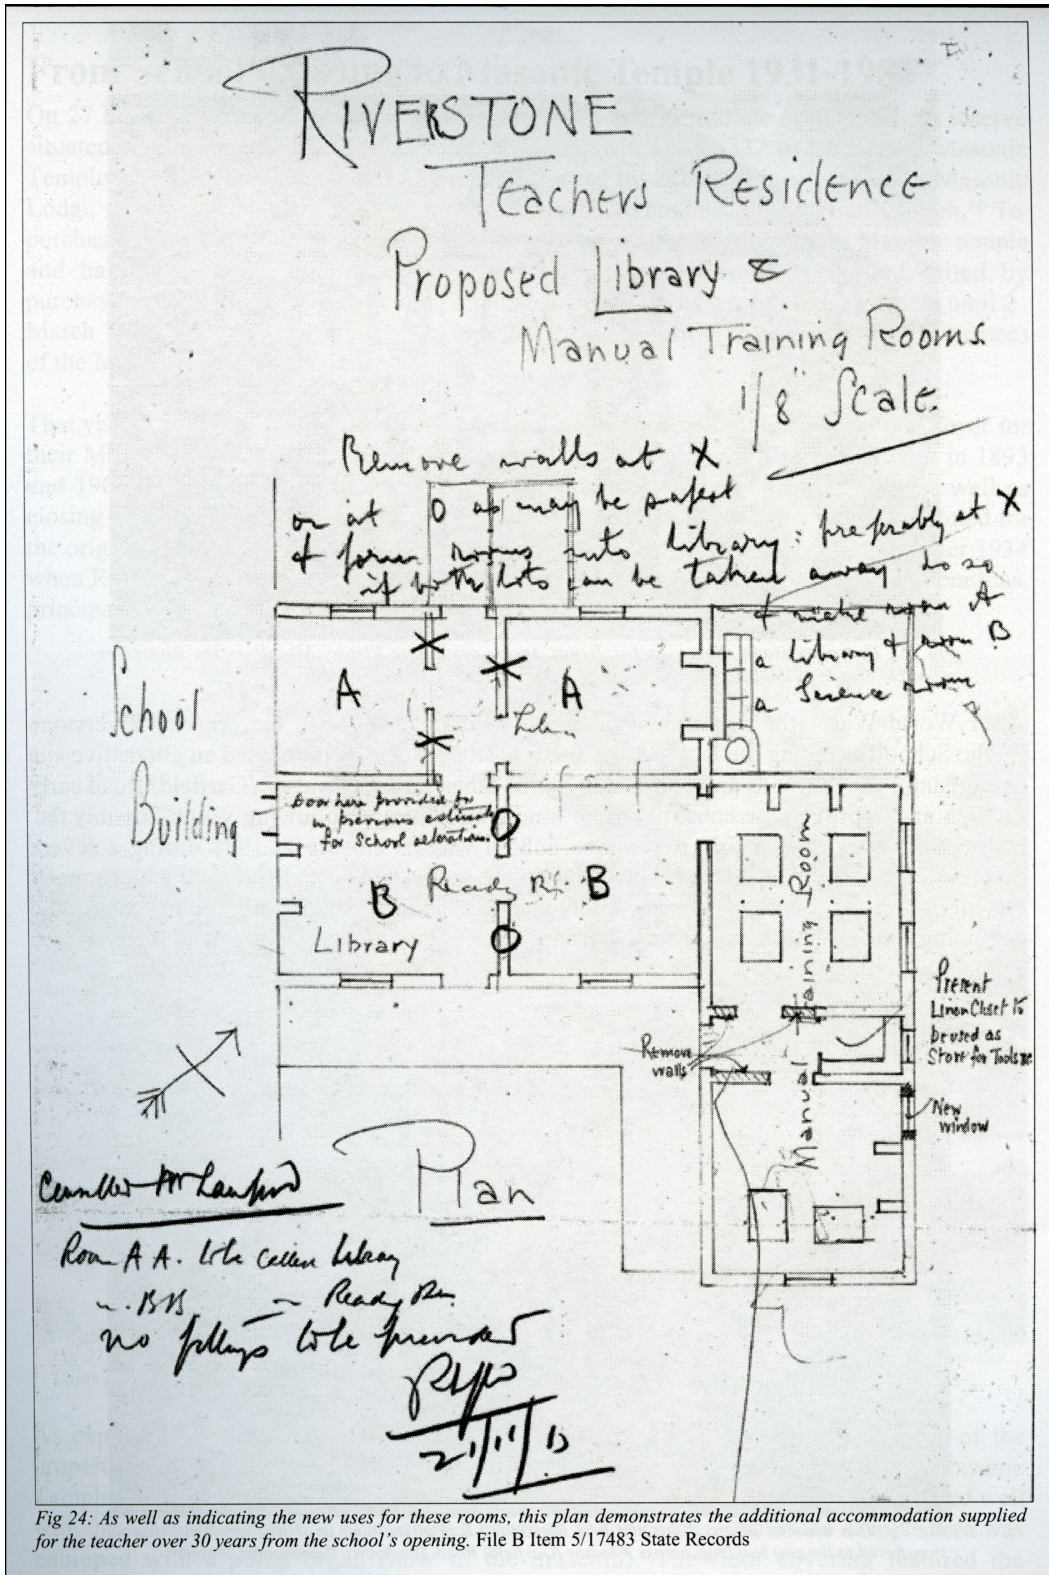 RIVERSTONE
Teachers Residence
Proposed Library &
Manual Training Rooms.
1/8" Scale.
Remove walls at X
or at O as may be safest
& form rooms into library : preferably at X
if both lots can be taken away do so
& make room A
a Library & room B
a Science room
School
Building
A
A
Door here provided for
in previous estimate
for School alterations.
B
Ready Rm
B
Library
Manual Training Room
Present
Linen Closet to
be used as
Store for Tools &c
Remove
walls
New
window
Plan
Room A A. to be called Library
" BB " Ready Rm.
no fittings to be provided
21/11/13
Fig 24: As well as indicating the new uses for these rooms, this plan demonstrates the additional accommodation supplied
for the teacher over 30 years from the school's opening. File B Item 5/17483 State Records